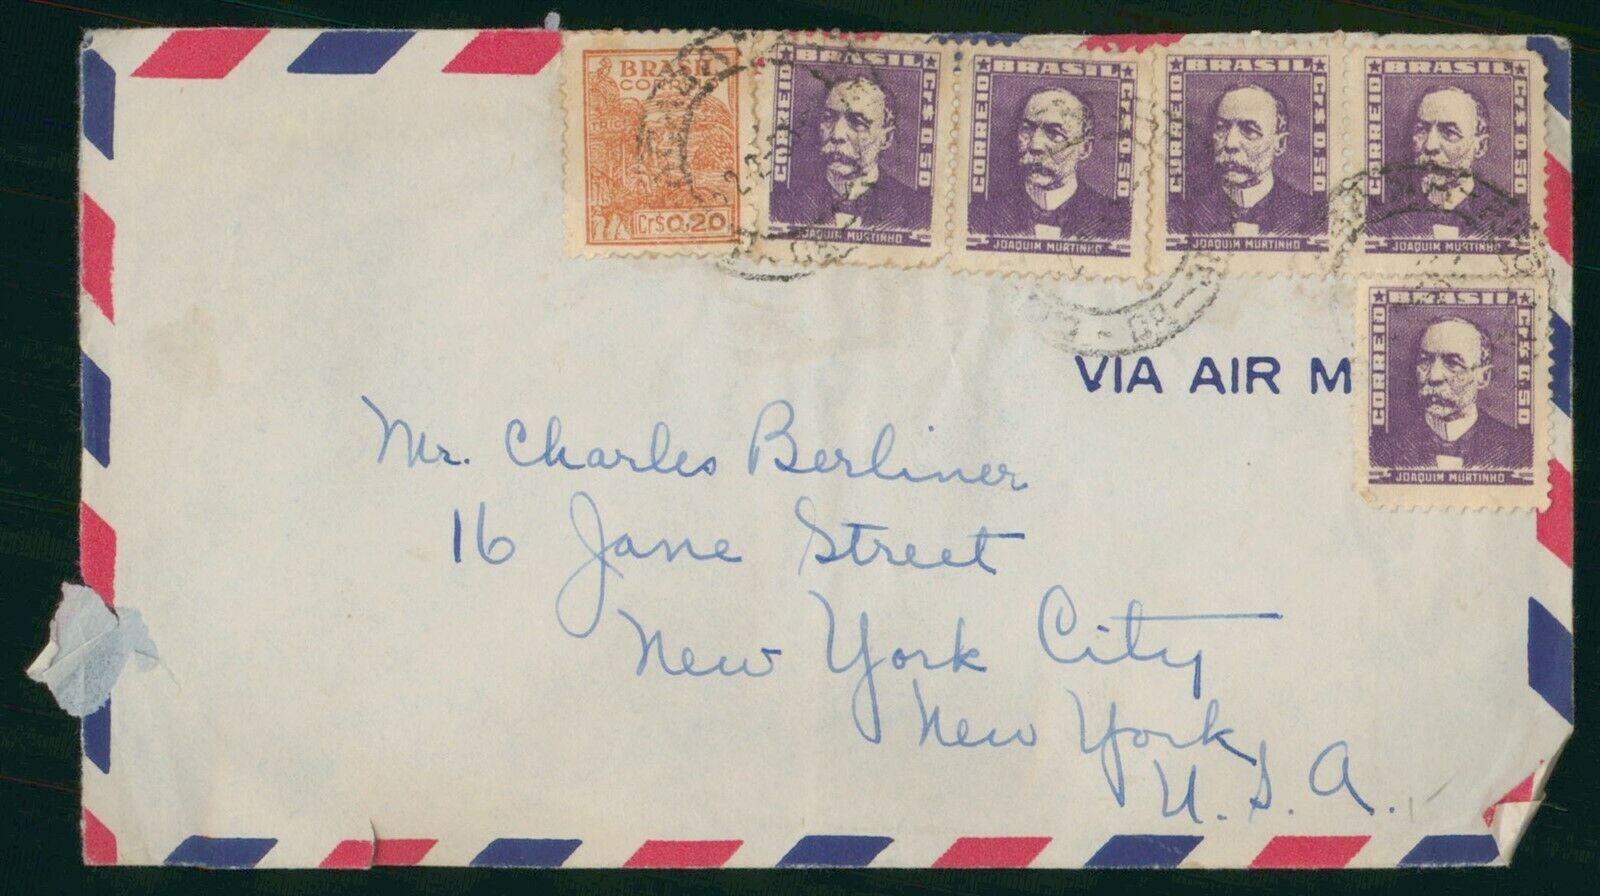 BRASIL
TRIGO
Cr$0,20
BRASIL
CORREIO
Cr$ 0,50
JOAQUIM MURTINHO
BRASIL
CORREIO
Cr$ 0,50
JOAQUIM MURTINHO
BRASIL
CORREIO
Cr$ 0,50
JOAQUIM MURTINHO
BRASIL
CORREIO
Cr$ 0,50
JOAQUIM MURTINHO
BRASIL
CORREIO
Cr$ 0,50
JOAQUIM MURTINHO
VIA AIR M
Mr. Charles Berliner
16 Jane Street
New York City
New York,
U.S.A.